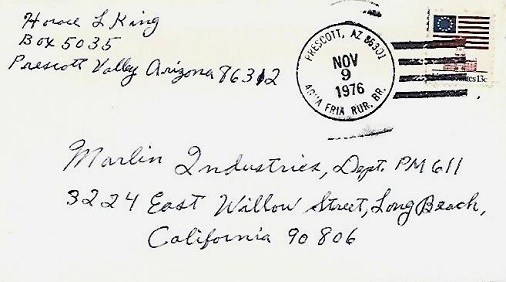 Horace L King
Box 5035
Prescott Valley Arizona 86312
PRESCOTT, AZ 86301
NOV
9
1976
AGUA FRIA RUR. BR.
13c
Marlin Industries, Dept. PM611
3224 East Willow Street, Long Beach,
California 90806